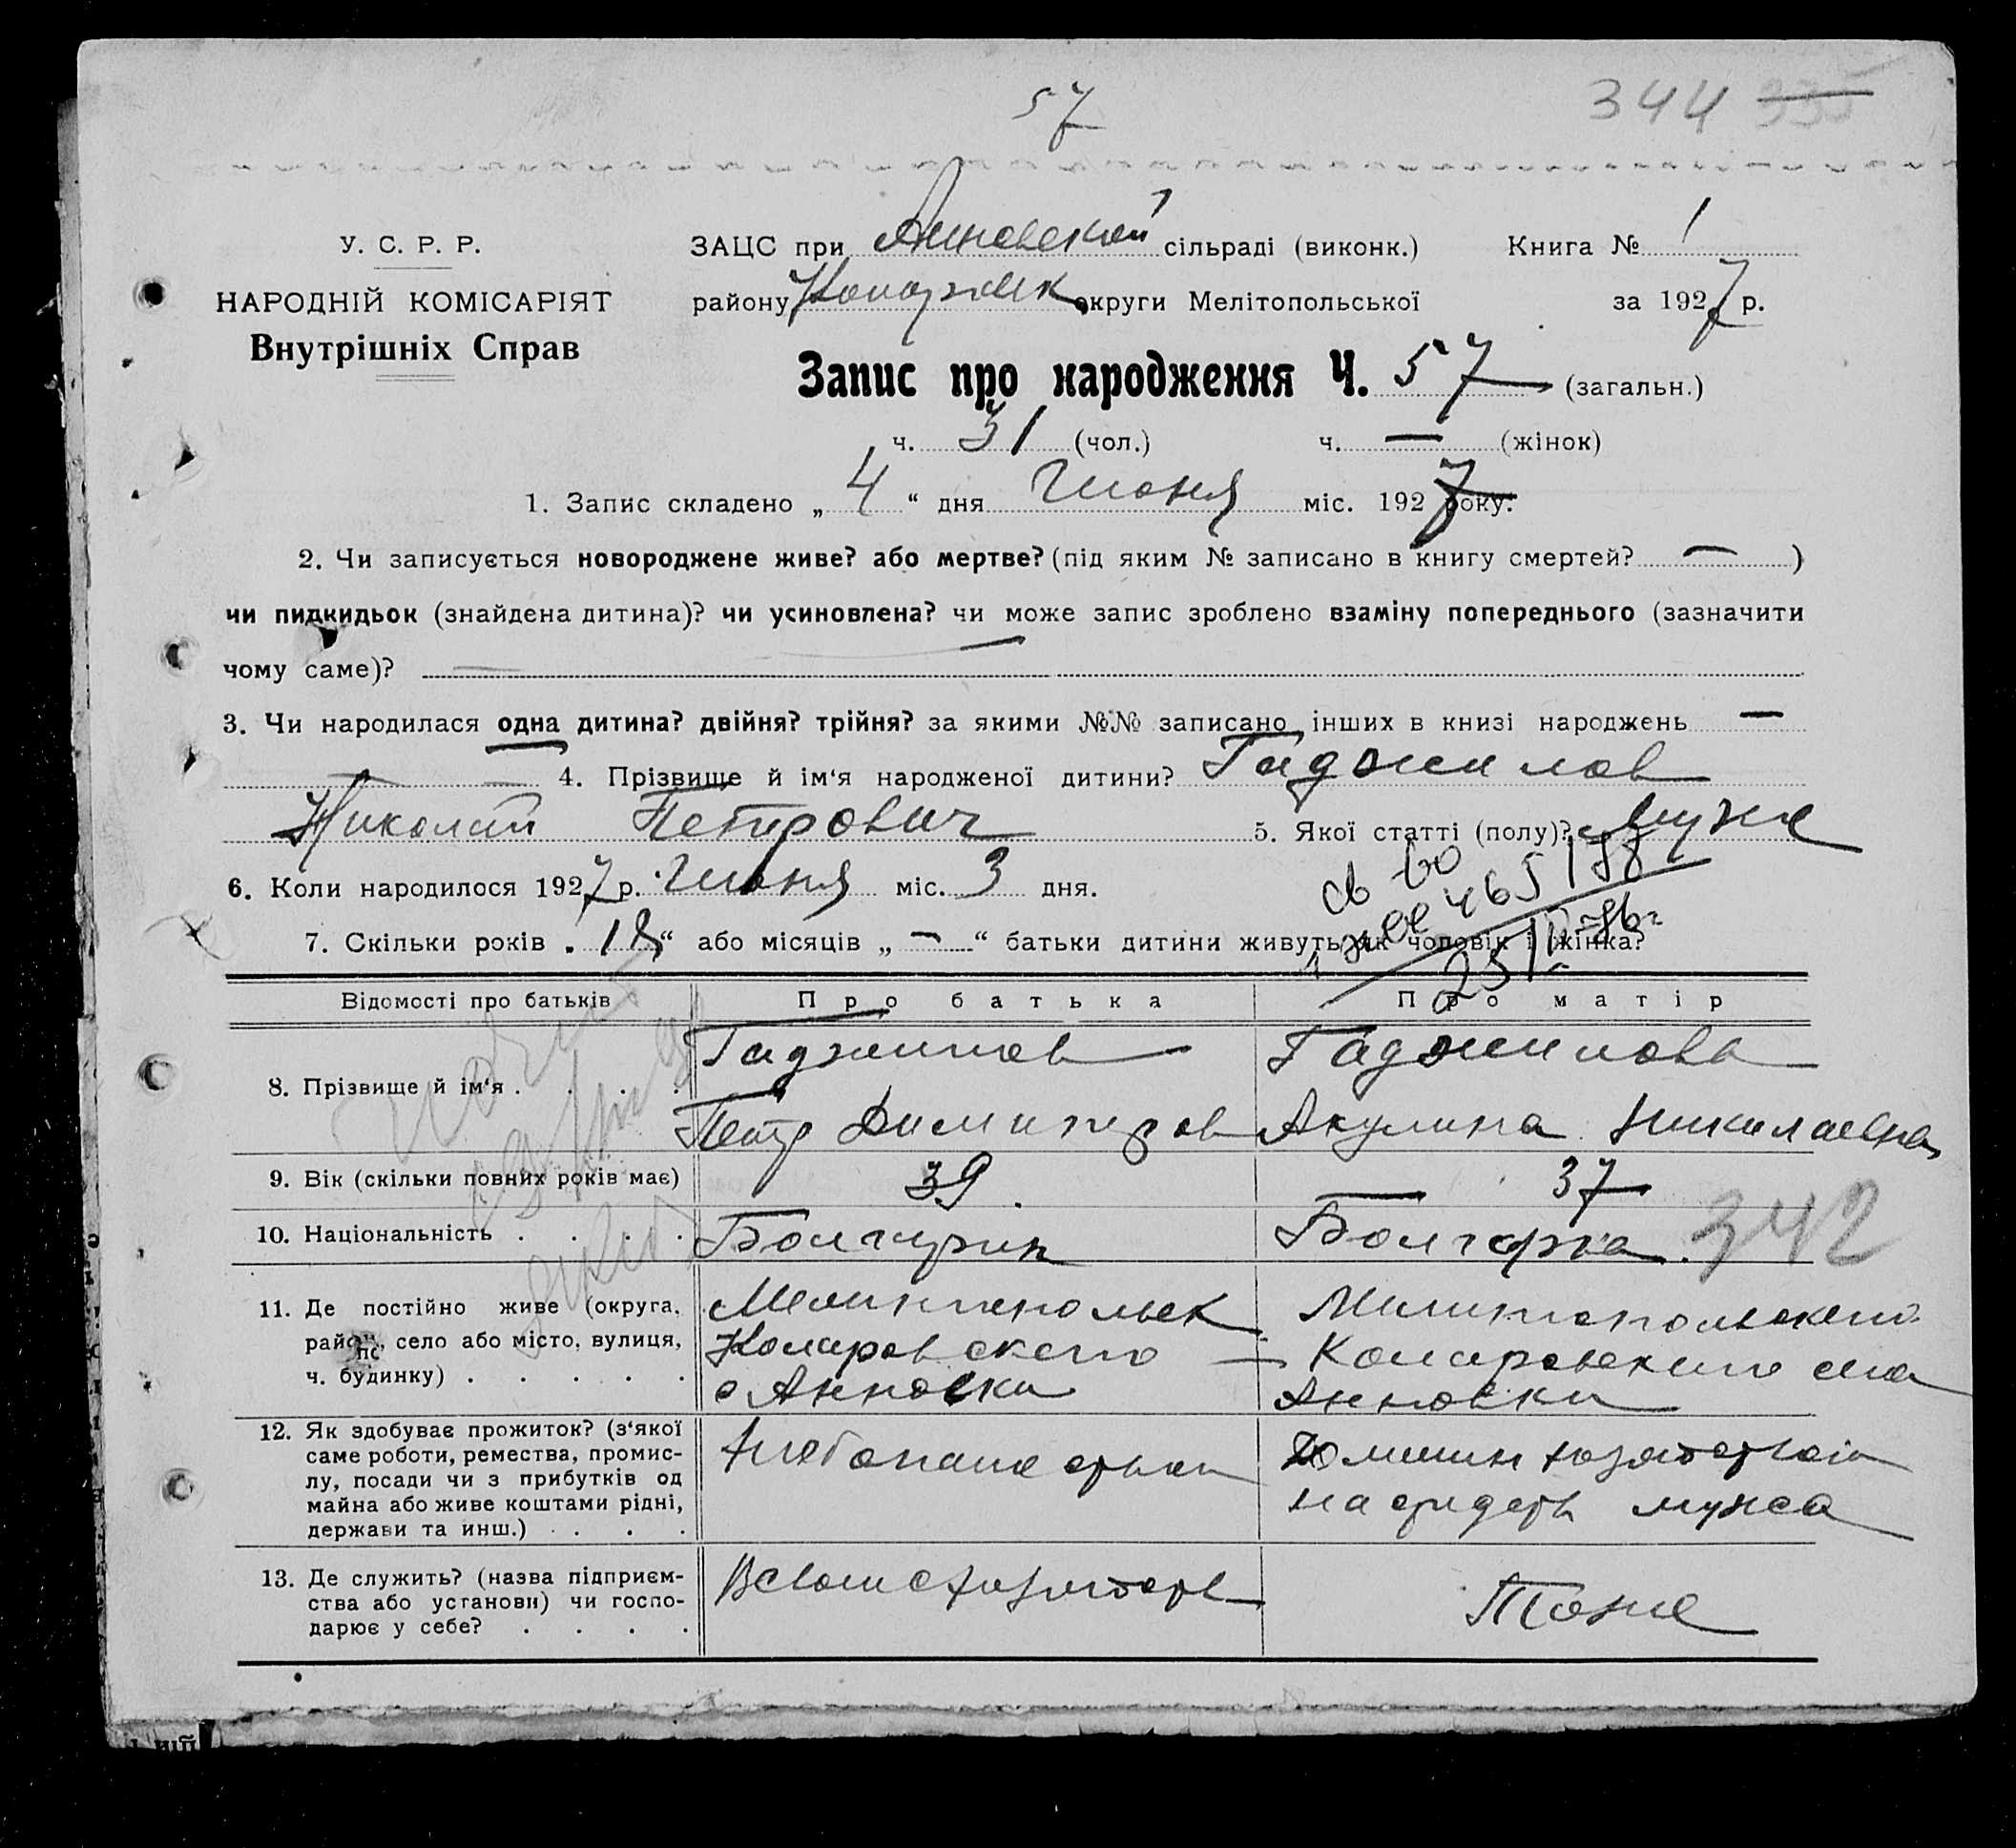 57
344 335
У. С. Р. Р.
НАРОДНІЙ КОМІСАРІЯТ
Внутрішніх Справ
ЗАЦС при Анновской сільраді (виконк.) Книга № 1
району округи Мелітопольської за 1927 р.
Запис про народження Ч. 57 (загальн.)
ч. 31 (чол.) ч. — (жінок)
1. Запис складено „ 4 “ дня Июня міс. 1927 року.
2. Чи записується новороджене живе? або мертве? (під яким № записано в книгу смертей? — )
чи пидкидьок (знайдена дитина)? чи усиновлена? чи може запис зроблено взаміну попереднього (зазначити
чому саме)? —
3. Чи народилася одна дитина? двійня? трійня? за якими №№ записано інших в книзі народжень —
— 4. Прізвище й ім‘я народженої дитини? Гаджилов
Николай Петрович 5. Якої статті (полу)? Муже
6. Коли народилося 1927 р. Июня міс. 3 дня.
7. Скільки років „ 18 “ або місяців „ — “ батьки дитини живуть як чоловік і жінка?
Відомості про батьків Про батька Про матір
8. Прізвище й ім‘я . . . . Гаджилов Гаджилова
Петр Димитров Акулина Николаевна
9. Вік (скільки повних років має) 39. 37
10. Національність . . . . Болгарин Болгарка. 342
11. Де постійно живе (округа, район, село або місто, вулиця, ч. будинку) . . . . .
Мелитопольск Мелитопольского
Коларовского Коларовского села
с Анновка Анновки
12. Як здобуває прожиток? (з‘якої
саме роботи, ремества, промис-
лу, посади чи з прибутків од
майна або живе коштами рідні,
держави та инш.) . . . .
Хлебопашеством Домашн хозяйством
на средств мужа
13. Де служить? (назва підприєм-
ства або установи) чи госпо-
дарює у себе? . . . .
В своем хозяйств Тоже